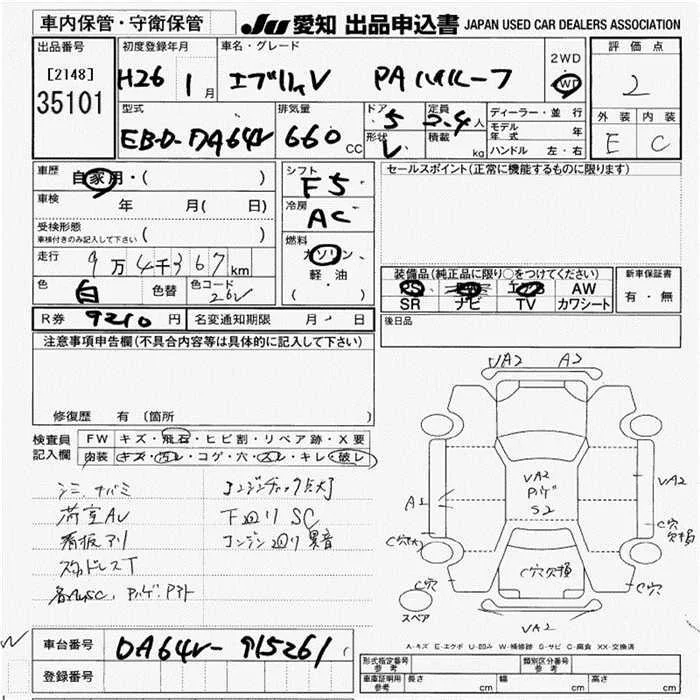 車内保管・守衛保管 JU 愛知 出品申込書 JAPAN USED CAR DEALERS ASSOCIATION
出品番号 初度登録年月 車名・グレード 2WD 評価点
[2148] H26 1月 エブリィV PA ハイルーフ 4WD 2
35101
型式 排気量 ドア 5 定員 2-4人 ディーラー・並行 外装 内装
EBD-DA64V 660cc 形状 V 積載 kg モデル年式 年 E C
ハンドル 左・右
車歴 自家用・( ) シフト F5 セールスポイント(正常に機能するものに限ります)
車検 年 月( 日) 冷房 AC
受検形態 ( )
車検付きのみ記入して下さい
走行 9万4千367km 燃料 ガソリン
軽・油
( )
色 白 色替 色コード 26V 装備品(純正品に限り○をつけてください) 新車保証書
PS AW 有・無
SR ナビ TV カワシート
R券 9210円 名変通知期限 月 日 後日品
注意事項申告欄(不具合内容等は具体的に記入して下さい)
修復歴 有 〔箇所
検査員 FW キズ・飛石・ヒビ割・リペア跡・X要
記入欄 内装 キズ・汚レ・コゲ・穴・スレ・キレ・破レ
VA2 A2
シミ、ナバミ エンジンチェック点灯
荷室AU 下廻りSC
看板アリ コンデン廻り異音
スタッドレスT
VA2
S2
A1
VA2
C穴(大)
C穴
欠損
C穴欠損
C穴
C穴
スペア
VA2
車台番号 DA64V-915261
登録番号
A-キズ E-エクボ U-凹み W-補修跡 S-サビ C-腐食 XX-交換済
形式指定番号 参考 類別区分番号 参考
車庫証明用 参考 長さ cm 幅 cm 高さ cm